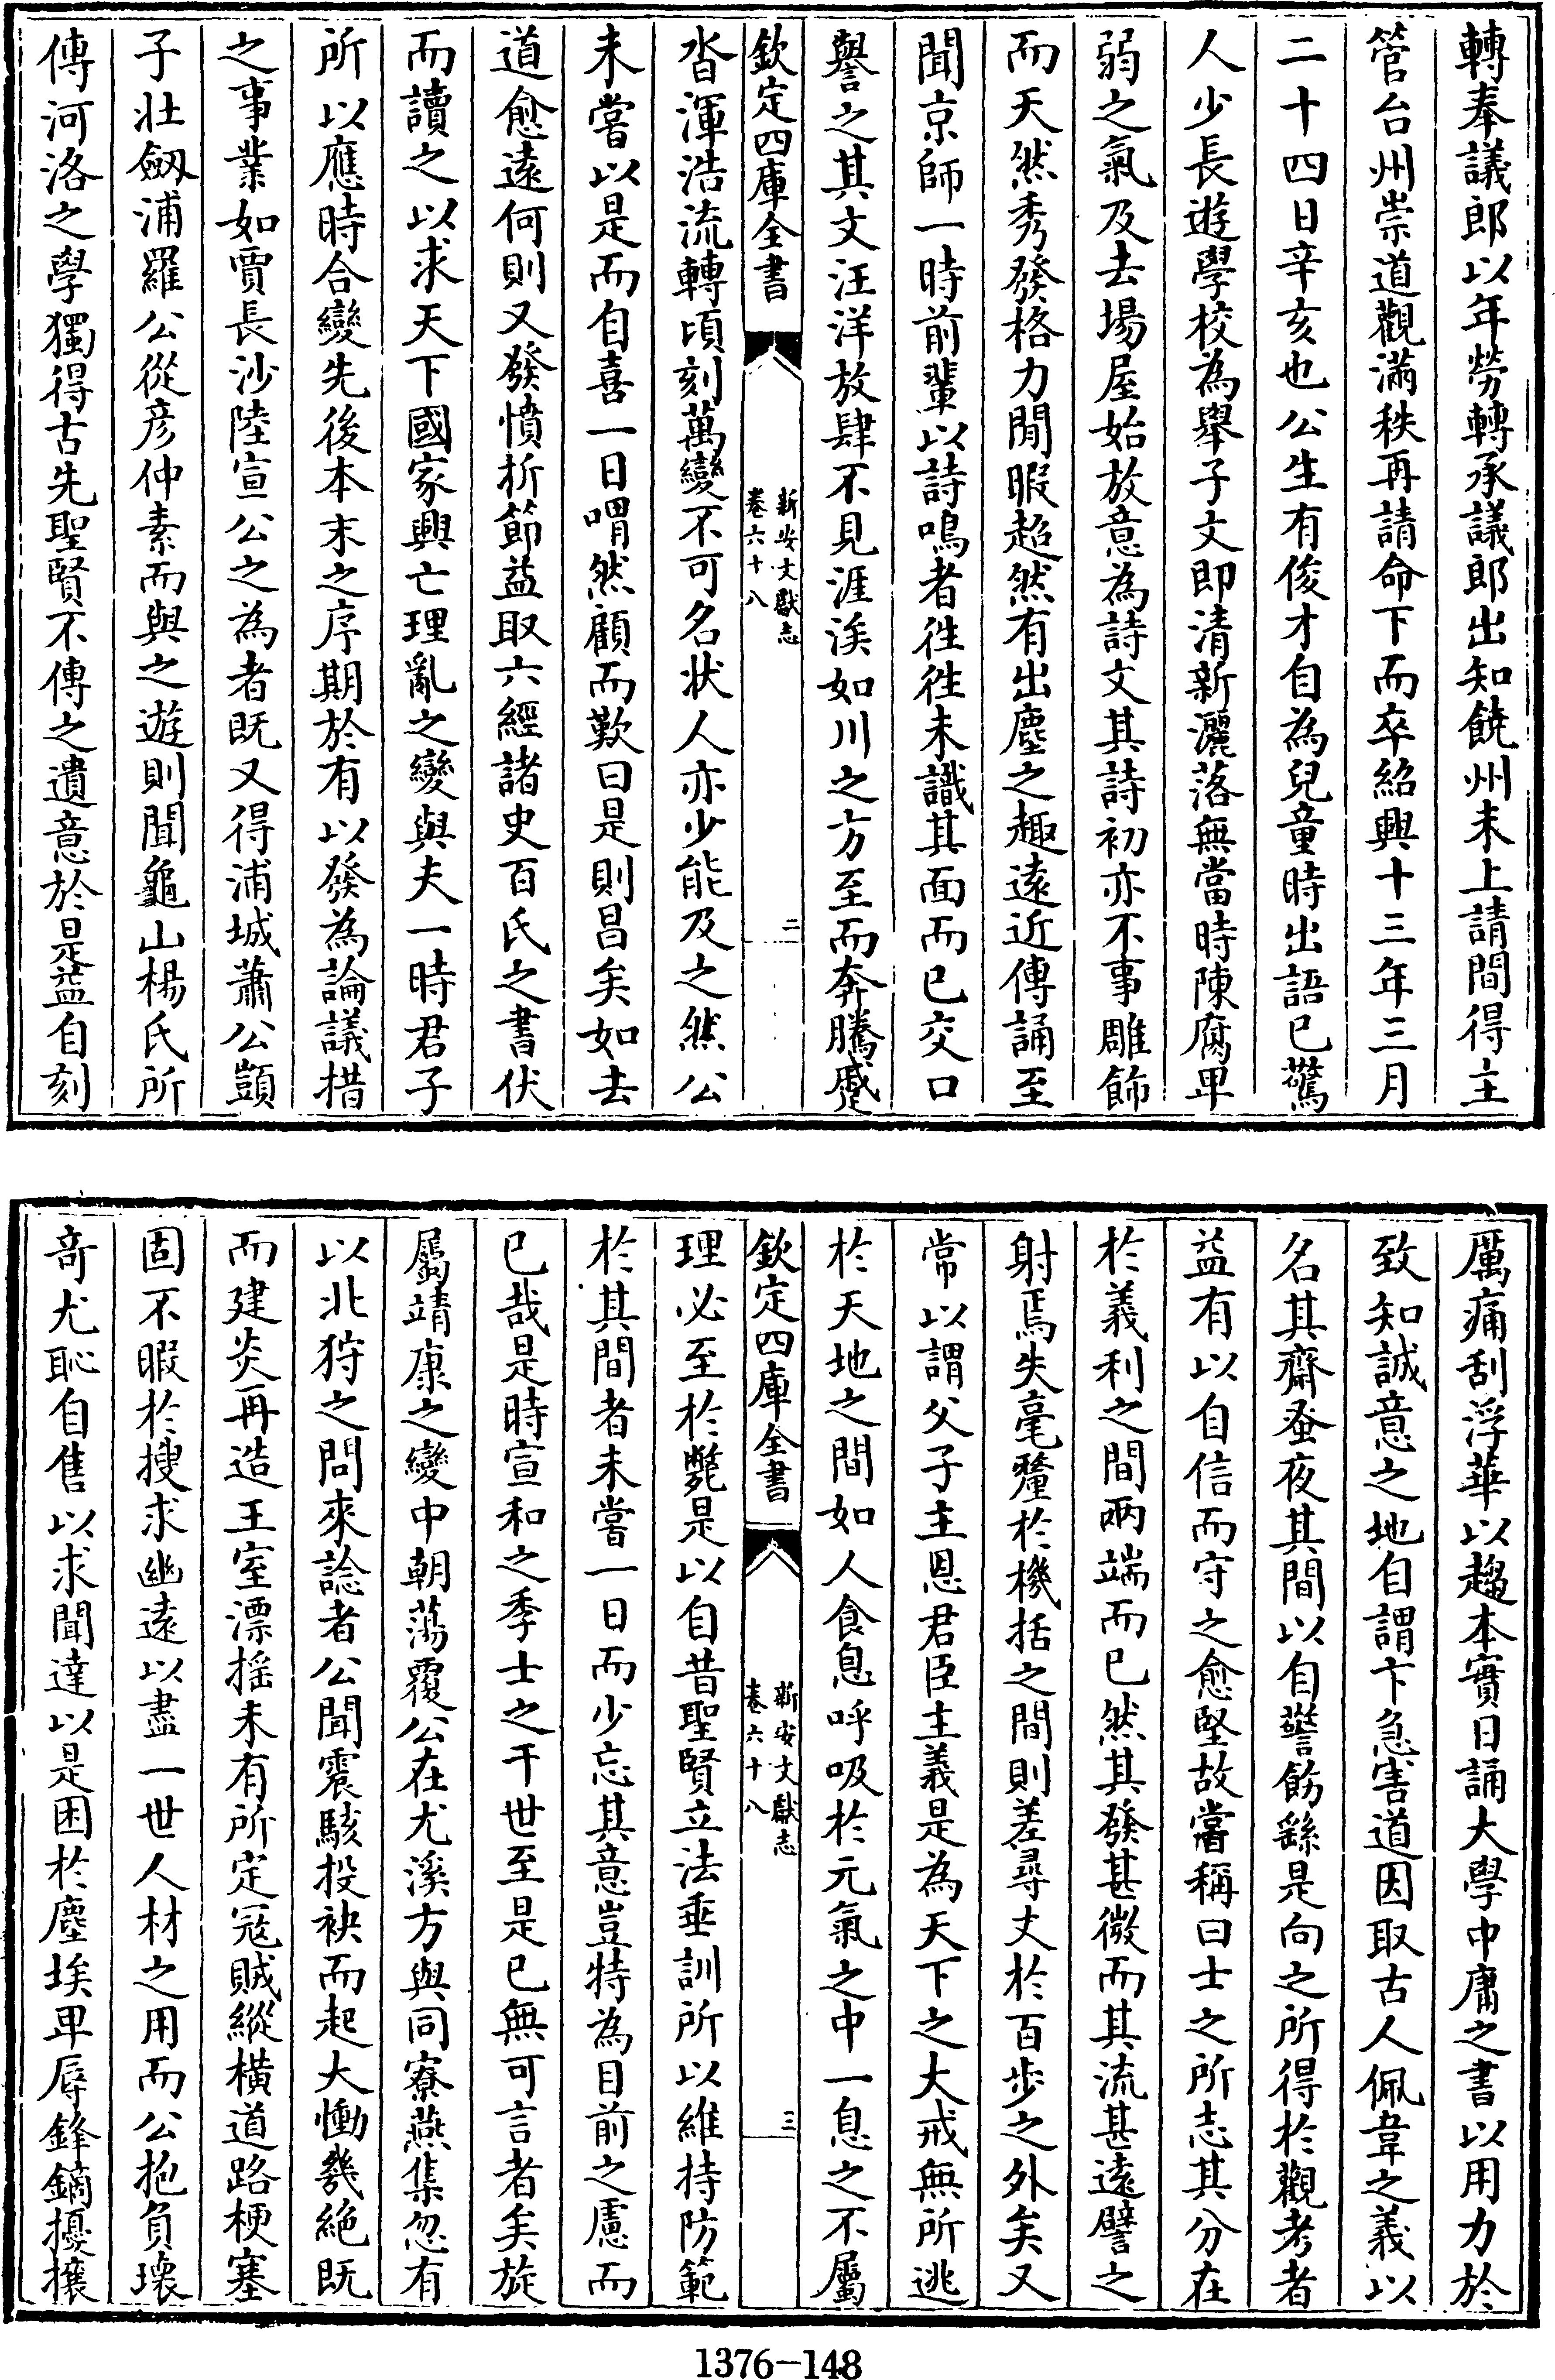 轉奉議郎以年勞轉承議郎出知饒州未上請間得主
管台州崇道觀滿秩再請命下而卒紹興十三年三月
二十四日辛亥也公生有俊才自為兒童時出語已驚
人少長遊學校為舉子文即清新灑落無當時陳腐卑
弱之氣及去場屋始放意為詩文其詩初亦不事雕飾
而天然秀發格力閒暇超然有出塵之趣遠近傳誦至
聞京師一時前輩以詩鳴者往往未識其面而已交口
譽之其文汪洋放肆不見涯涘如川之方至而奔騰蹙
欽定四庫全書
新安文獻志
卷六十八
二
沓渾浩流轉頃刻萬變不可名状人亦少能及之然公
未嘗以是而自喜一日喟然顧而歎曰是則昌矣如去
道愈遠何則又發憤折節益取六經諸史百氏之書伏
而讀之以求天下國家興亡理亂之變與夫一時君子
所以應時合變先後本末之序期於有以發為論議措
之事業如賈長沙陸宣公之為者既又得浦城蕭公顗
子壯劔浦羅公從彦仲素而與之遊則聞龜山楊氏所
傳河洛之學獨得古先聖賢不傳之遺意於是益自刻
厲痛刮浮華以趨本實日誦大學中庸之書以用力於
致知誠意之地自謂卞急害道因取古人佩韋之義以
名其齋蚤夜其間以自警飭繇是向之所得於觀考者
益有以自信而守之愈堅故嘗稱曰士之所志其分在
於義利之間兩端而已然其發甚微而其流甚遠譬之
射焉失毫釐於機括之間則差尋丈於百步之外矣又
常以謂父子主恩君臣主義是為天下之大戒無所逃
於天地之間如人食息呼吸於元氣之中一息之不屬
欽定四庫全書
新安文獻志
卷六十八
三
理必至於斃是以自昔聖賢立法垂訓所以維持防範
於其間者未嘗一日而少忘其意豈特為目前之慮而
已哉是時宣和之季士之干世至是已無可言者矣旋
屬靖康之變中朝蕩覆公在尤溪方與同寮燕集忽有
以北狩之問來諗者公聞震駭投袂而起大慟幾絕既
而建炎再造王室漂揺未有所定冦賊縱橫道路梗塞
固不暇於搜求幽遠以盡一世人材之用而公抱負壞
奇尤恥自售以求聞達以是困於塵埃卑辱鋒鏑擾攘
1376-148